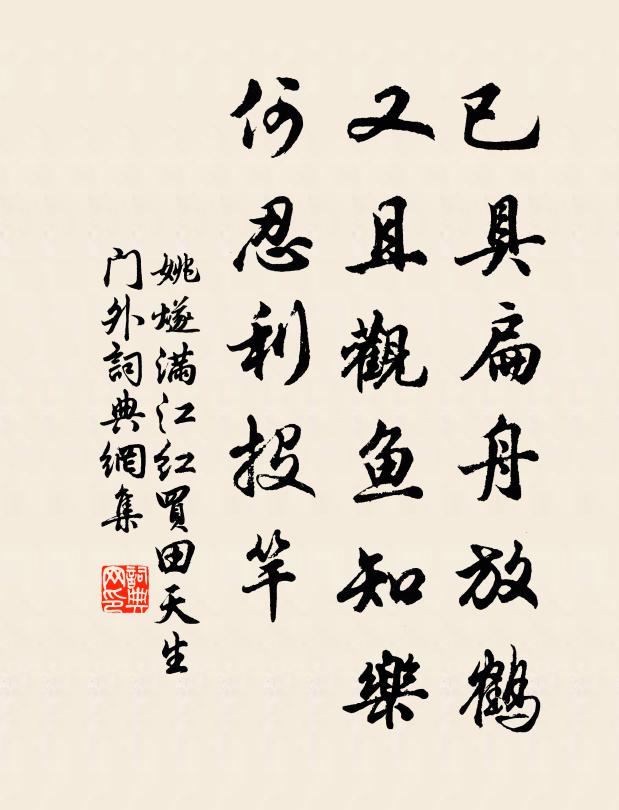 已具扁舟放鹤
又且觀鱼知樂
何忍利投竿
姚燧满江红買田天生
门外詞典網集
詞典
网印